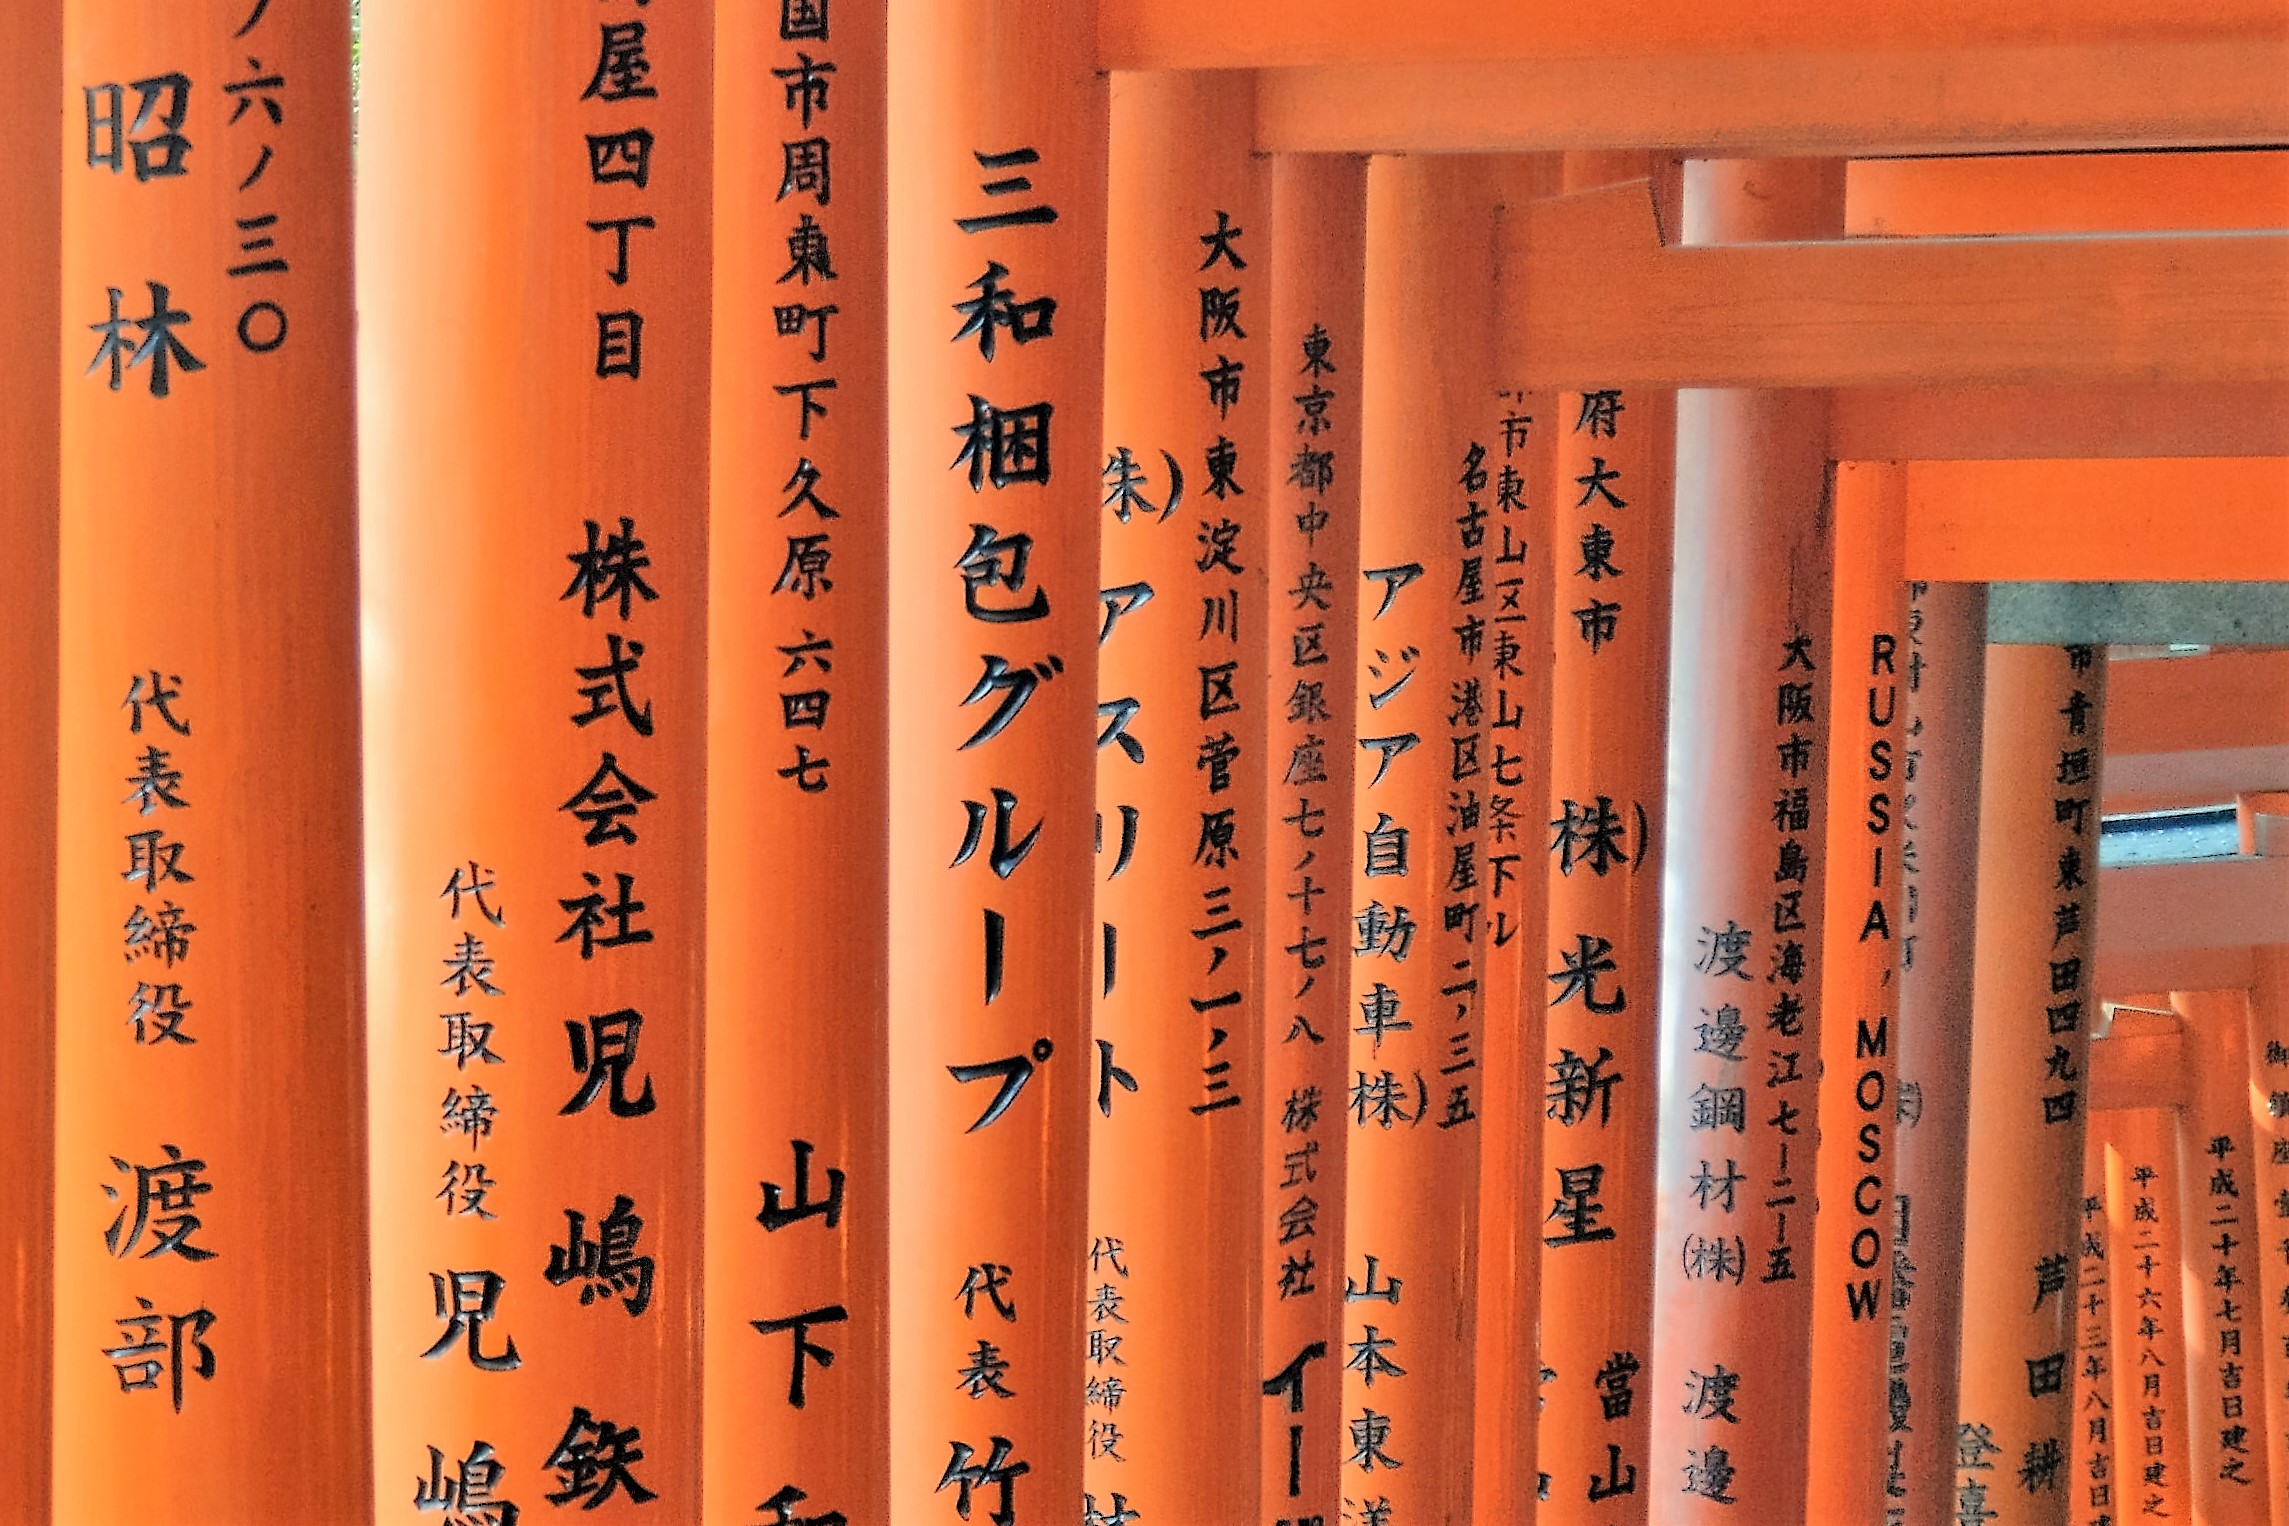 ノ六ノ三〇
昭林 代表取締役 渡部
屋四丁目
株式会社児嶋鉄
代表取締役 児嶋
国市周東町下久原六四七
山下和
三和梱包グループ 代表 竹
大阪市東淀川区菅原三ノ一ノ三
株)アスリート 代表取締役
東京都中央区銀座七ノ十七ノ八 株式会社 イー
名古屋市港区油屋町二ノ三五
アジア自動車(株) 山本東洋
市東山区東山七条下ル
府大東市
株)光新星 當山
大阪市福島区海老江七ー二ー五
渡邊鋼材(株) 渡邊
RUSSIA, MOSCOW
市青垣町東芦田四九四
芦田耕
平成二十三年八月吉日
平成二十六年八月吉日建之
平成二十年七月吉日建之
御